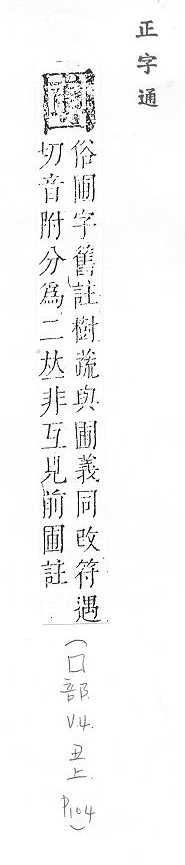 正字通
俗圃字舊註樹蔬與圃義同改符遇
切音附分爲二𠀤非互見前圃註
(囗部 v.4. 丑上. P104)